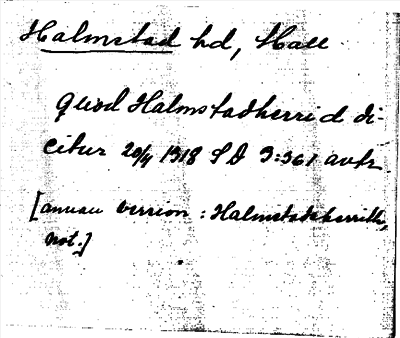 Halmstad hd, Hall
quod Halmstadherrid di-
citur 20/4 1318 SD 3:361 avskr.
[annan version: Halmstadhherrith,
not.]